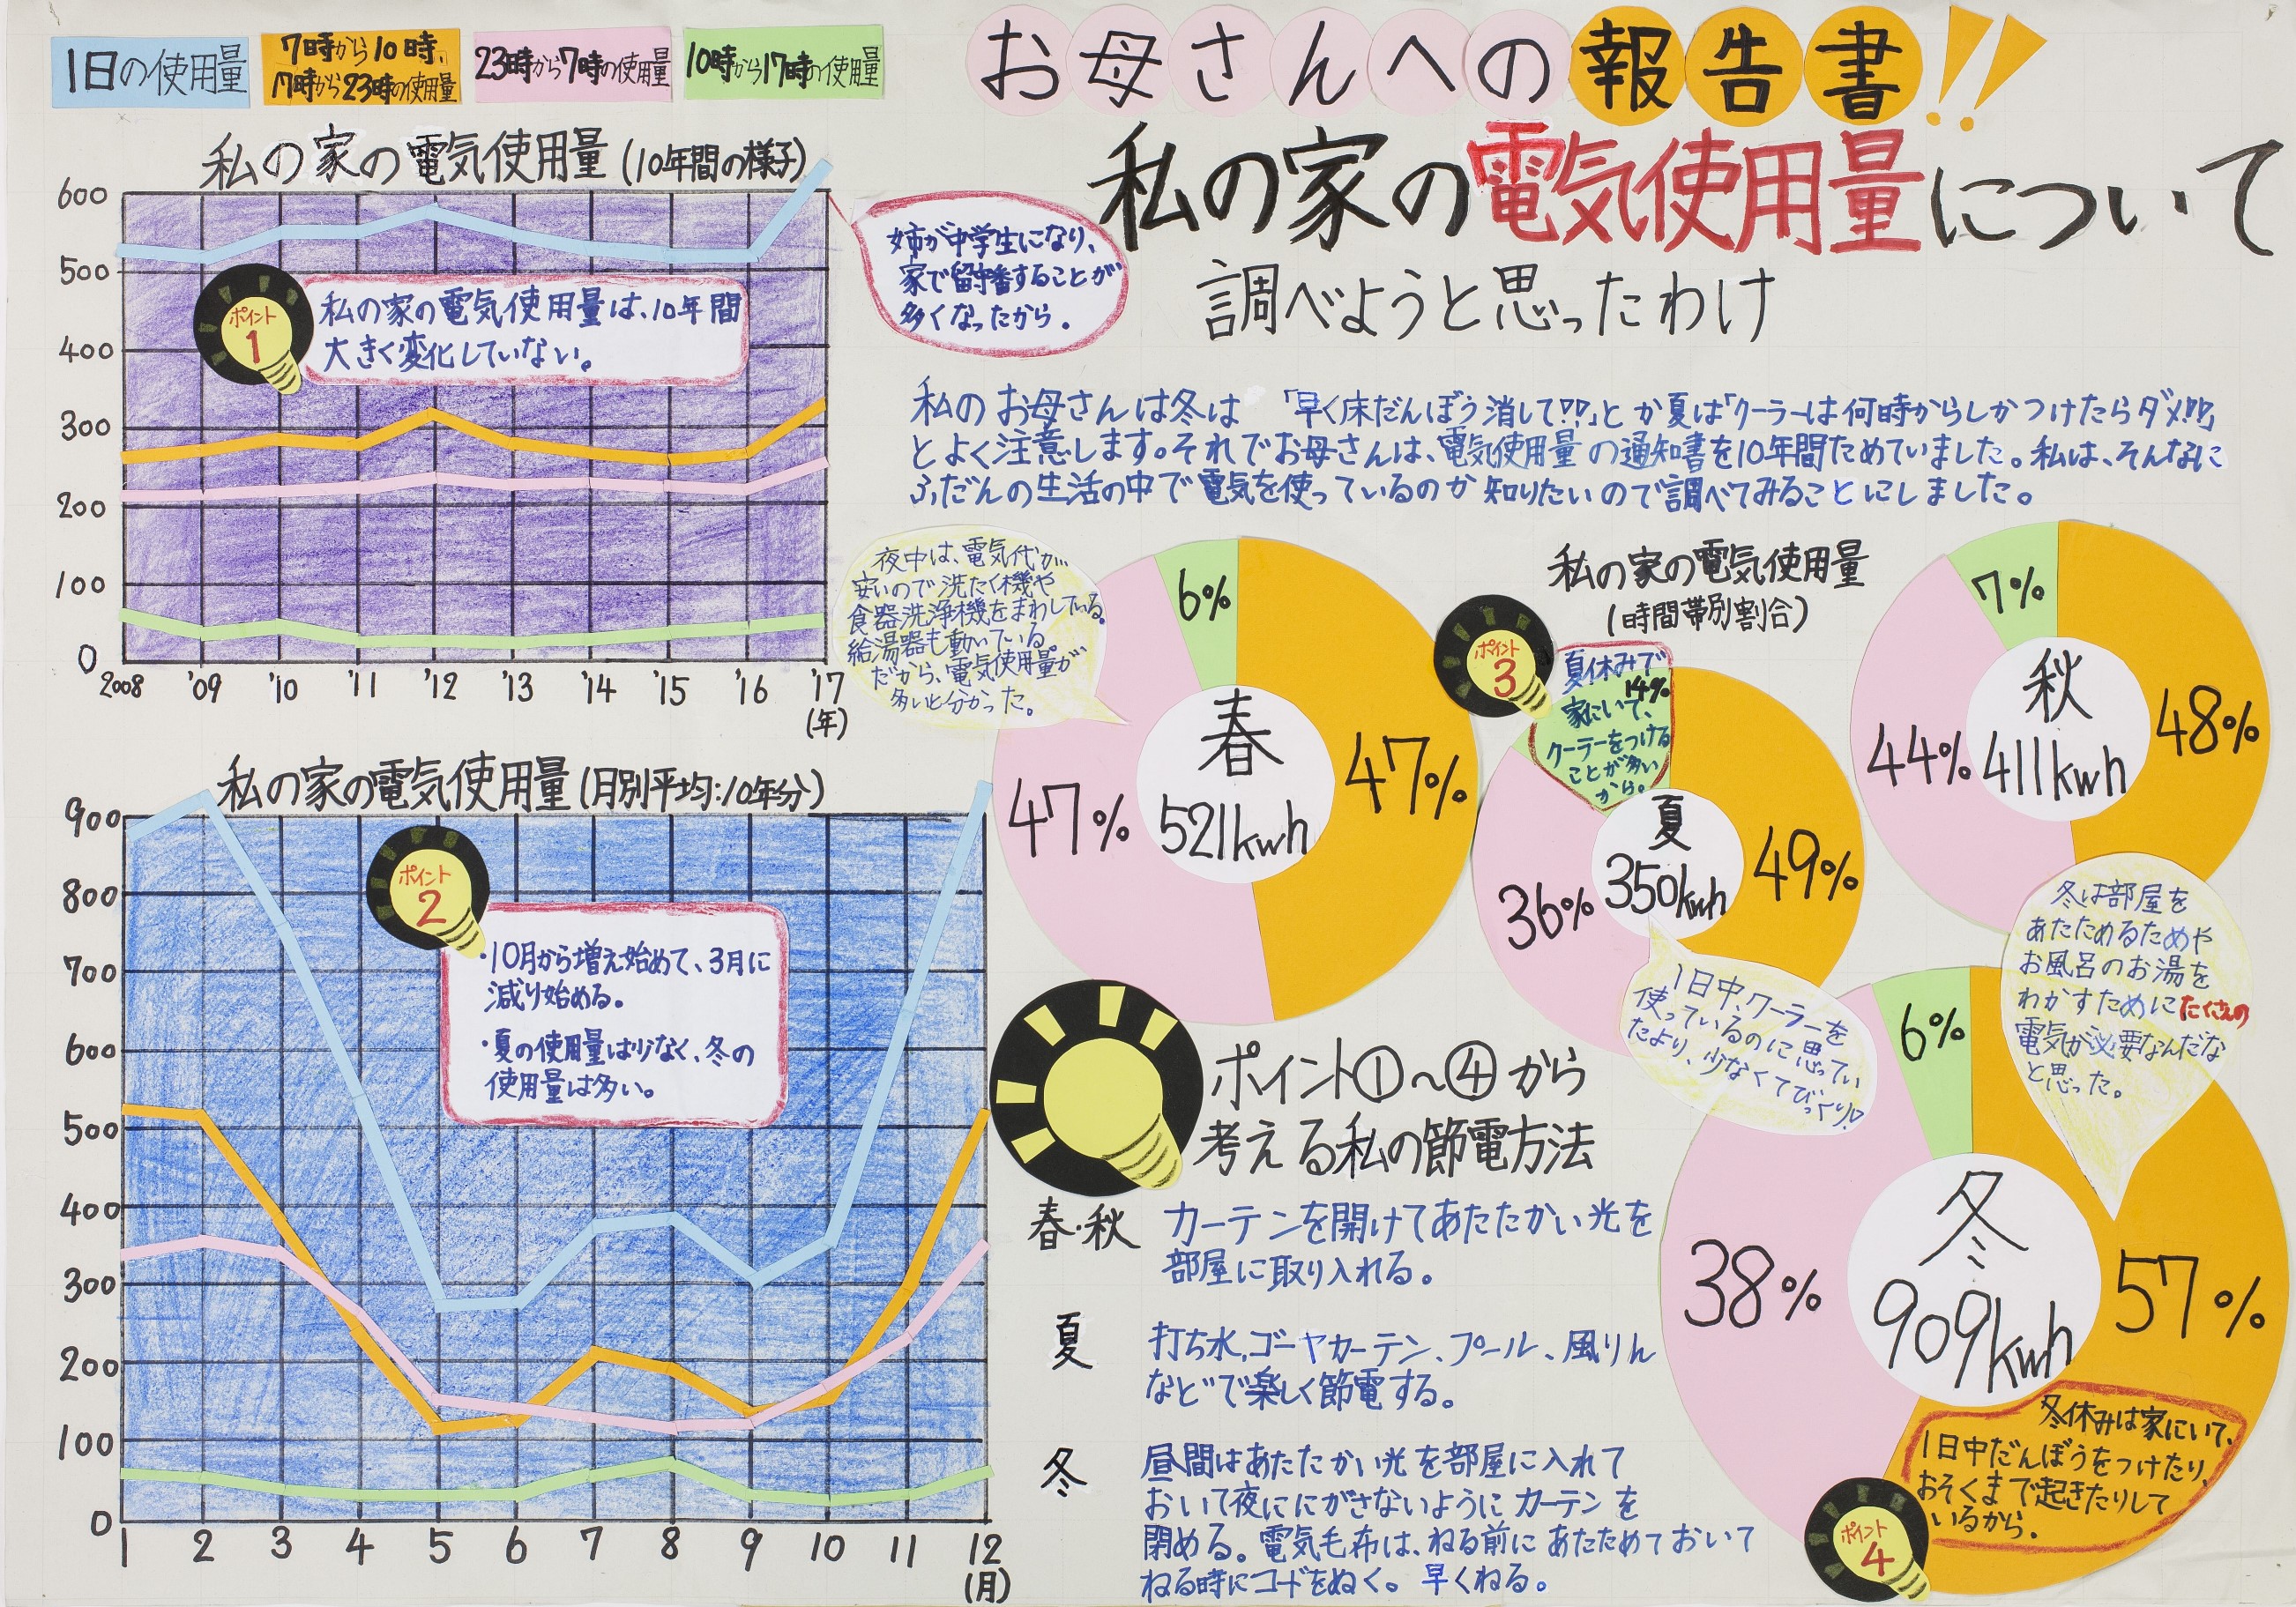 お母さんへの報告書!!
私の家の電気使用量について
調べようと思ったわけ
私のお母さんは冬は「早く床だんぼう消して!!」とか夏は「クーラーは何時からしかつけたらダメ!!」
とよく注意します。それでお母さんは、電気使用量の通知書を10年間ためていました。私は、そんなに
ふだんの生活の中で電気を使っているのか知りたいので調べてみることにしました。
1日の使用量
7時から10時、
17時から23時の使用量
23時から7時の使用量
10時から17時の使用量
私の家の電気使用量(10年間の様子)
600
500
400
300
200
100
0
2008 '09 '10 '11 '12 '13 '14 '15 '16 '17
(年)
ポイント
1
私の家の電気使用量は、10年間
大きく変化していない。
姉が中学生になり、
家で留守番することが
多くなったから。
私の家の電気使用量(月別平均:10年分)
900
800
700
600
500
400
300
200
100
0
1 2 3 4 5 6 7 8 9 10 11 12
(月)
ポイント
2
・10月から増え始めて、3月に
減り始める。
・夏の使用量は少なく、冬の
使用量は多い。
私の家の電気使用量
(時間帯別割合)
夜中は、電気代が
安いので洗たく機や
食器洗浄機をまわしている。
給湯器も動いている。
だから、電気使用量が
多いと分かった。
春
521kwh
6%
47%
47%
ポイント
3
夏休みで
14%
家にいて、
クーラーをつける
ことが多い
から。
夏
350kwh
36%
49%
1日中、クーラーを
使っているのに思ってい
たより、少なくてびっくり!
秋
411kwh
7%
44%
48%
冬は部屋を
あたためるためや
お風呂のお湯を
わかすためにたくさんの
電気が必要なんだな
と思った。
冬
909kwh
6%
38%
57%
冬休みは家にいて、
1日中だんぼうをつけたり、
おそくまで起きたりして
いるから。
ポイント
4
ポイント①~④から
考える私の節電方法
春・秋
カーテンを開けてあたたかい光を
部屋に取り入れる。
夏
打ち水、ゴーヤカーテン、プール、風りん
などで楽しく節電する。
冬
昼間はあたたかい光を部屋に入れて
おいて夜ににがさないようにカーテンを
閉める。電気毛布は、ねる前にあたためておいて
ねる時にコードをぬく。早くねる。